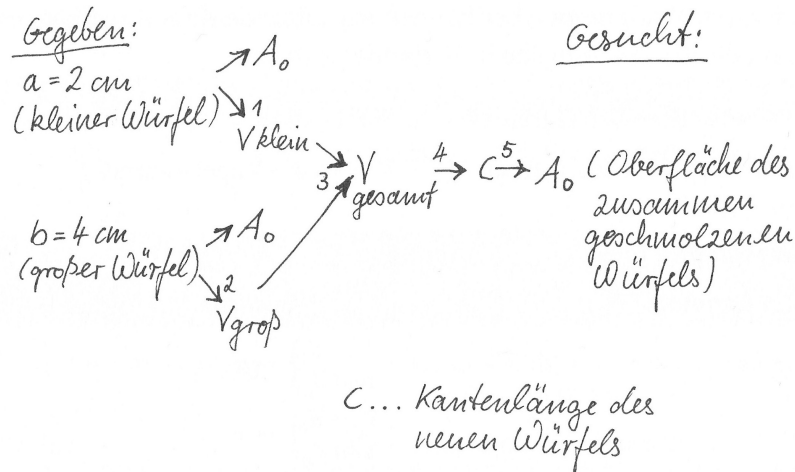 Gegeben:
a = 2 cm
(kleiner Würfel)
↗ A₀
↘ 1
V klein
b = 4 cm
(großer Würfel)
↗ A₀
↘ 2
V groß
3
V
gesamt
4 → C 5 → A₀
Gesucht:
(Oberfläche des
zusammen
geschmolzenen
Würfels)
C... Kantenlänge des
neuen Würfels